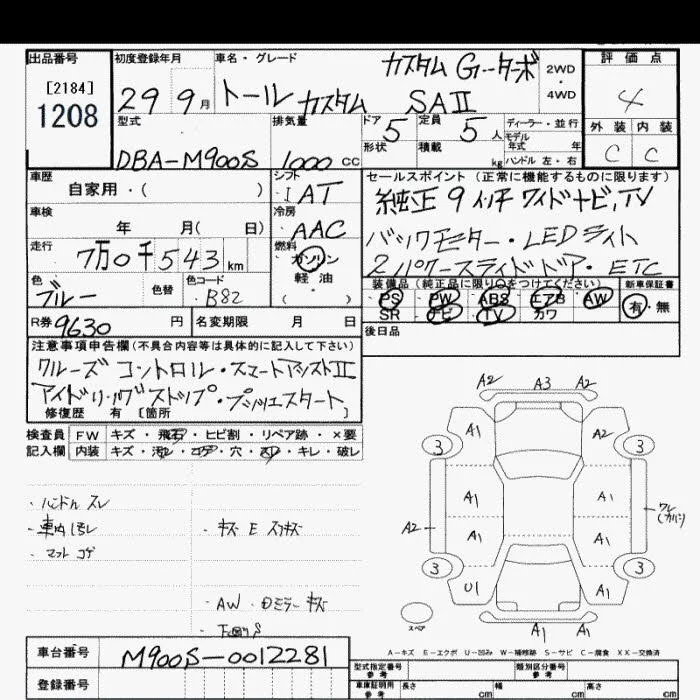 出品番号
[2184]
1208
初度登録年月
29 9月
車名・グレード
カスタム Gターボ
トール カスタム SAⅡ
2WD
・
4WD
評価点
4
外装 内装
C C
型式
DBA-M900S
排気量
1000 cc
ドア 5
形状
定員 5人
積載 kg
ディーラー・並行
モデル
年式 年
ハンドル 左・右
車歴
自家用・( )
シフト
I AT
車検
年 月( 日)
冷房
AAC
走行
7万0千543km
燃料
ガソリン
軽油
( )
色
ブルー
色替
色コード
B82
R券 9630 円
名変期限 月 日
セールスポイント(正常に機能するものに限ります)
純正9インチワイドナビ,TV
バックモニター・LEDライト
2パワースライドドア・ETC
装備品(純正品に限り○をつけてください)
PS PW ABS エアB AW
SR ナビ TV カワ
新車保証書
有・無
後日品
注意事項申告欄(不具合内容等は具体的に記入して下さい)
クルーズコントロール・スマートアシストⅡ
アイドリングストップ・プッシュスタート
修復歴 有 〔箇所
検査員
記入欄
FW キズ・飛石・ヒビ割・リペア跡・×要
内装 キズ・汚レ・コゲ・穴・スレ・キレ・破レ
・ハンドルスレ
・車内汚レ
・マットコゲ
・キズ E スリキズ
・AW・Dミラーキズ
・下廻りS
A2 A3 A2
A1 A2
3 3
A1 A1
A2 A1 A1
ワレ
(カバー)
3 3
U1 A1
A1 A1
スペア
A-キズ E-エクボ U-凹み W-補修跡 S-サビ C-腐食 XX-交換済
車台番号
M900S-0012281
登録番号
型式指定番号
参考
類別区分番号
参考
車庫証明用
参考
長さ cm
幅 cm
高さ cm